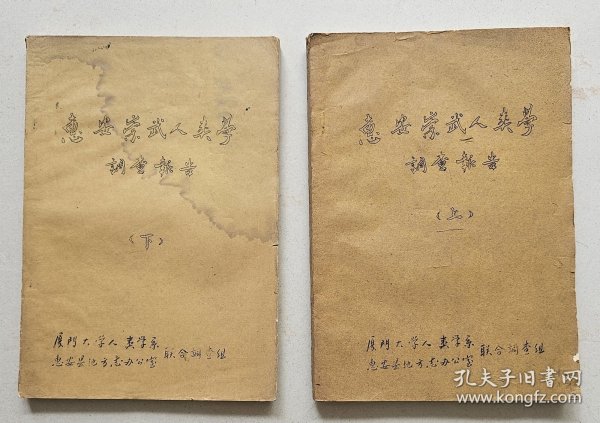 惠安崇武人类學
調查報告
(下)
厦門大学人类学系
惠安县地方志办公室
联合調查组
惠安崇武人类學
調查報告
(上)
厦門大学人类学系
惠安县地方志办公室
联合調查组
孔夫子旧书网
www.kongfz.com